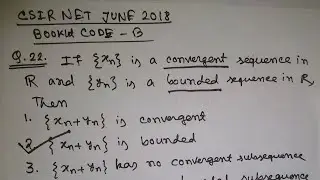 CSIR NET JUNE 2018
BOOKLET CODE - B
Q.22. If {xn} is a convergent sequence in
R and {yn} is a bounded sequence in R,
Then
1. {xn + yn} is convergent
2. {xn + yn} is bounded
3. {xn + yn} has no convergent subsequence
subsequence